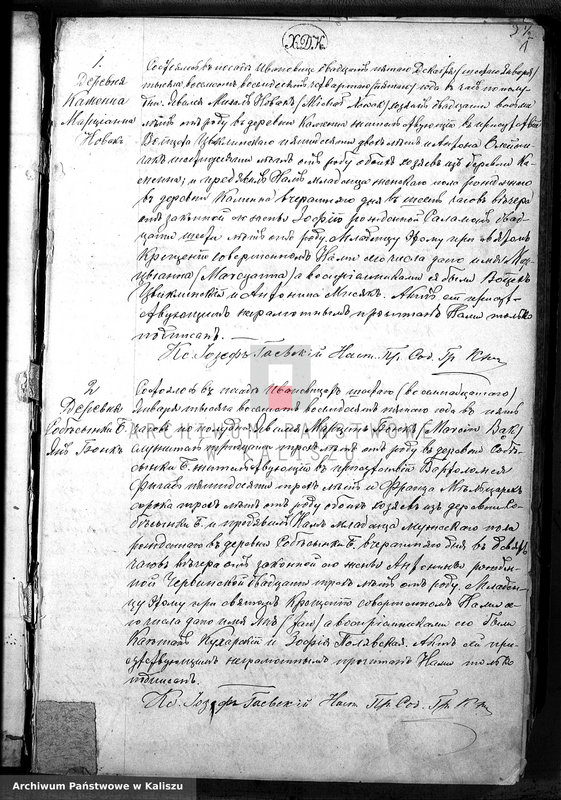 Х.Д.К.
1.
Деревня
Каменна
Марцианна
Новак
Состоялось въ посадѣ Ивановице двадцать пятаго Декабря (шестаго Января)
тысяча восемьсотъ восемьдесятъ четвертаго года въ часъ по полу
дни. Явился Михалъ Новакъ (Michał Nowak) двадцати восьми
лѣтъ отъ роду въ деревни Каменна жительствующій въ присутствіи
Войцеха Цвиклинскаго пятидесяти двухъ лѣтъ и Антона
лѣтъ отъ роду обоихъ хозяевъ изъ деревни Ка-
менна; и предъявилъ Намъ младенца женскаго пола рожденнаго
въ деревни Каменна вчерашняго дня въ шесть часовъ вечера
отъ законной его жены Зофіи рожденной двад-
цати шести лѣтъ отъ роду. Младенцу этому при святомъ
Крещеніи совершенномъ Нами сего числа дано имя Мар-
цыанна (Marcyanna) а воспріемниками его были Войцехъ
Цвиклинскій и Антонина. Актъ сей присут-
ствующимъ неграмотнымъ прочитанъ Нами только
подписанъ.
Кс. Іозефъ Гаевскій Наст. Пр. Сод. Гр. Кн.
2
Деревня
Собѣсенки Б.
Янъ Бонкъ
Состоялось въ посадѣ Ивановицахъ шестаго (восемнадцатаго)
Января тысяча восемьсотъ восемьдесятъ пятаго года въ пять
часовъ по полудни. Явился Марцинъ Бонкъ (Marcin Bąk)
служитель тридцати трехъ лѣтъ отъ роду въ деревни Собѣ-
сенки Б. жительствующій въ присутствіи Бартоломея
пятидесяти трехъ лѣтъ и Франца
сорока трехъ лѣтъ отъ роду обоихъ хозяевъ изъ деревни Со-
бѣсенки Б. и предъявилъ Намъ младенца мужескаго пола
рожденнаго въ деревни Собѣсенки Б. вчерашняго дня въ девять
часовъ вечера отъ законной его жены Антонины рожден-
ной Червинской двадцати трехъ лѣтъ отъ роду. Младен-
цу этому при святомъ Крещеніи совершенномъ Нами се-
го числа дано имя Янъ (Jan) а воспріемниками его были
Каетанъ Кухарскій и Зофія Полявская. Актъ сей при-
сутствующимъ неграмотнымъ прочитанъ Нами только
подписанъ.
Кс. Іозефъ Гаевскій Наст. Пр. Сод. Гр. Кн.
ARCHIWUM PAŃSTWOWE
W KALISZU
Archiwum Państwowe w Kaliszu